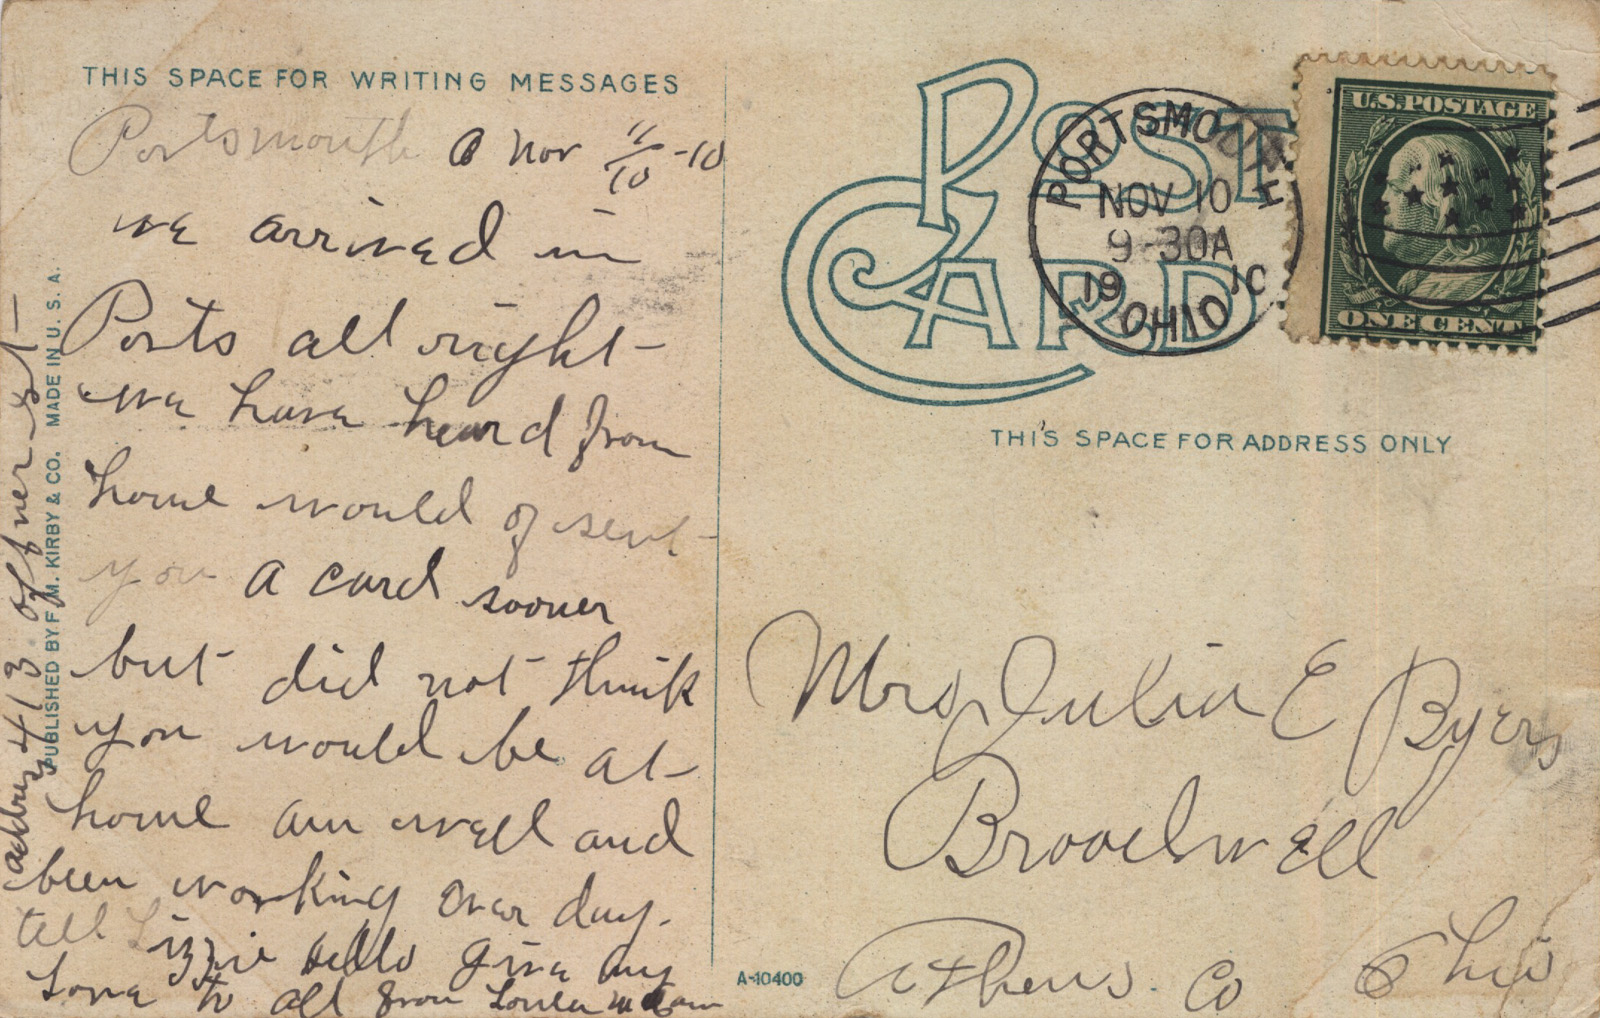 THIS SPACE FOR WRITING MESSAGES
Portsmouth O Nov 11/10-10
we arrived in
Ports all right
we have heard from
home would of sent
you a card sooner
but did not think
you would be at
home am well and
been working ever day.
tell Lizzie hello give my
Love to all from
413 offner st
PUBLISHED BY F. M. KIRBY & CO. MADE IN U. S. A.
POST CARD
PORTSMOUTH
NOV 10
9-30A
1910
OHIO
U.S. POSTAGE
ONE CENT
THIS SPACE FOR ADDRESS ONLY
Mrs Julia E Byers
Broadwell
Athens. Co Ohio
A-10400